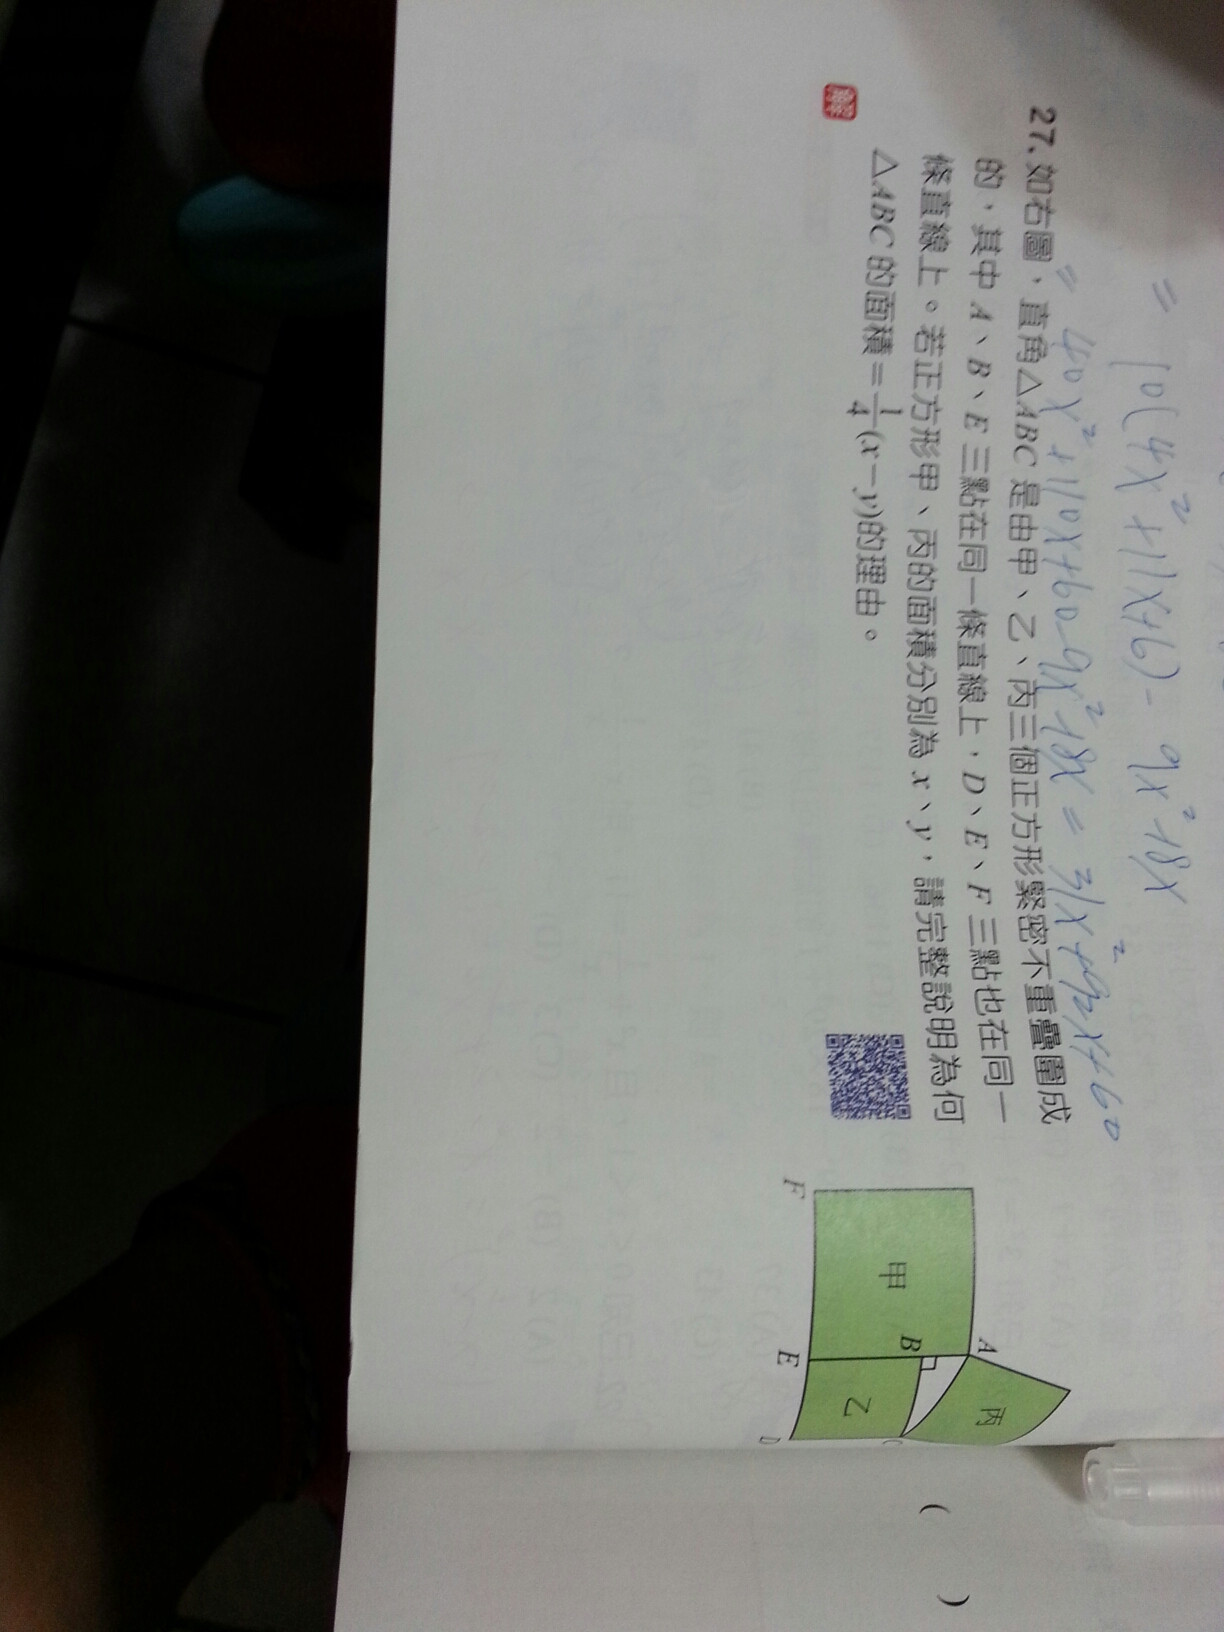 = 10(4x²+11x+6) - 9x²-18x
= 40x²+110x+60-9x²-18x = 31x²+92x+60
27. 如右圖，直角△ABC 是由甲、乙、丙三個正方形緊密不重疊圍成
的，其中 A、B、E 三點在同一條直線上，D、E、F 三點也在同一
條直線上。若正方形甲、丙的面積分別為 x、y，請完整說明為何
△ABC 的面積＝1/4(x－y)的理由。
解
甲
乙
丙
A
B
C
D
E
F
( )